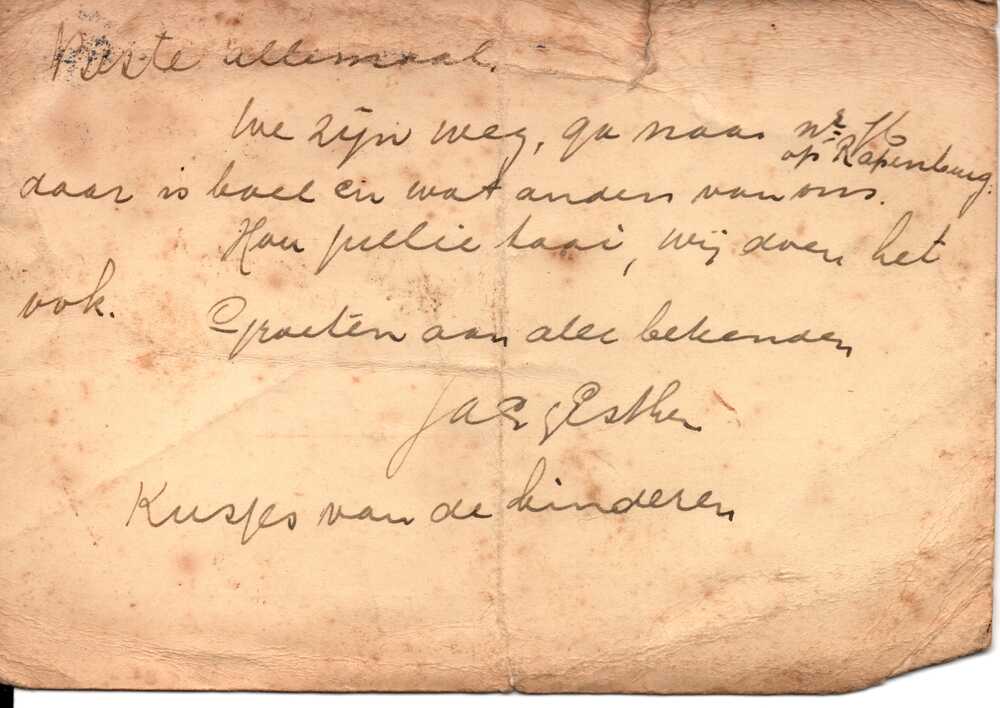 Beste allemaal.
We zijn weg, ga naar nr 76
op Rapenburg.
daar is boel en wat anders van ons.
Hou jullie taai, wij doen het
ook.
Groeten aan alle bekenden
Jac & Esther
Kusjes van de kinderen